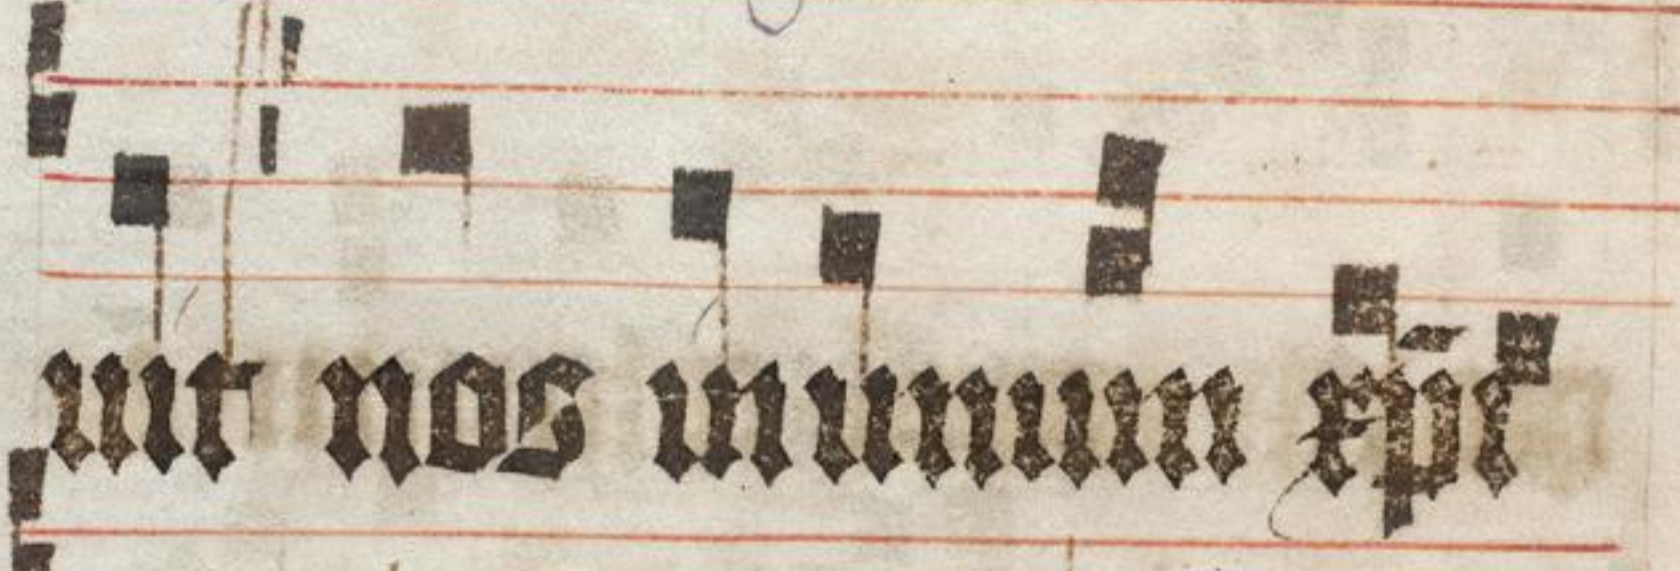 uit nos in unum xp̄i